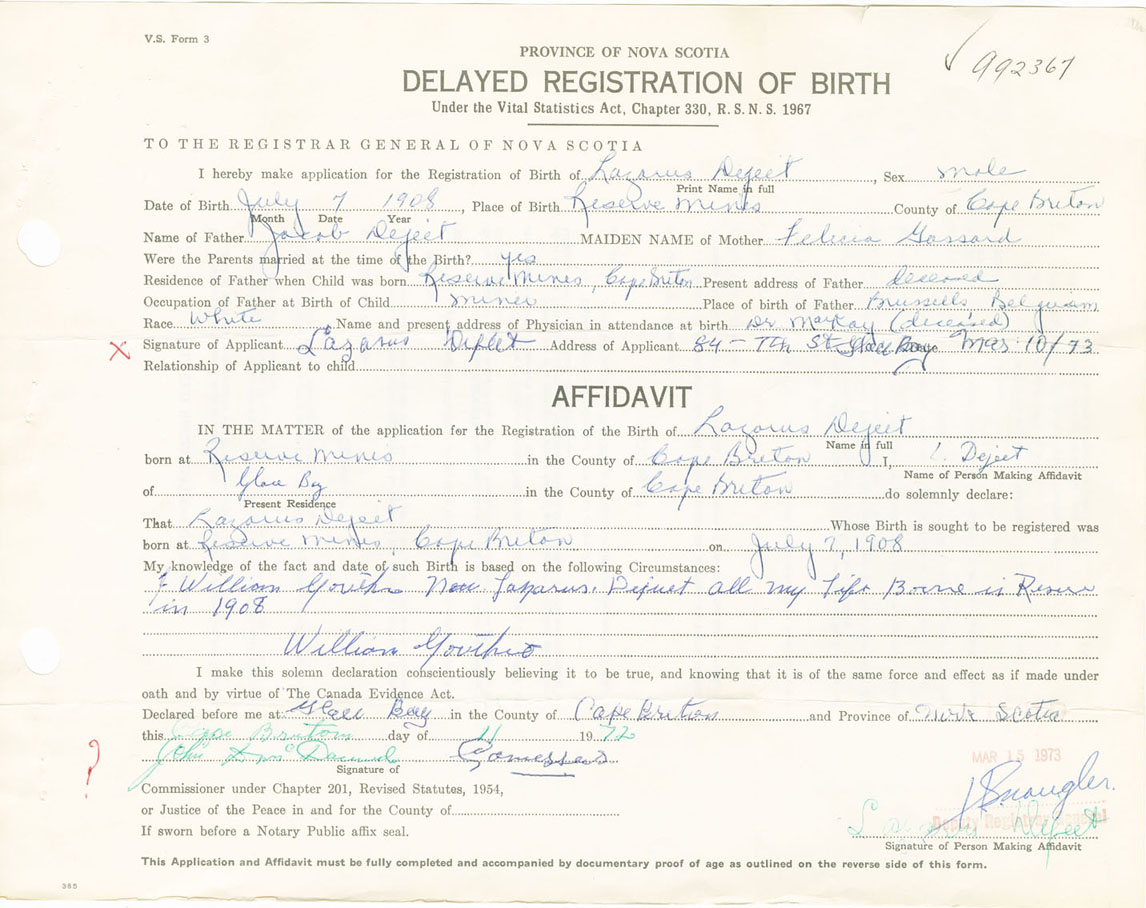 V.S. Form 3
992367
PROVINCE OF NOVA SCOTIA
DELAYED REGISTRATION OF BIRTH
Under the Vital Statistics Act, Chapter 330, R.S.N.S. 1967
TO THE REGISTRAR GENERAL OF NOVA SCOTIA
I hereby make application for the Registration of Birth of Lazarus Dejeet, Sex male
Print Name in full
Date of Birth July 7 1908, Place of Birth Reserve Mines County of Cape Breton
Month Date Year
Name of Father Jacob Dejeet MAIDEN NAME of Mother Felicia Gassard
Were the Parents married at the time of the Birth? yes
Residence of Father when Child was born Reserve Mines, Cape Breton Present address of Father deceased
Occupation of Father at Birth of Child miner Place of birth of Father Brussells, Belguiam
Race White Name and present address of Physician in attendance at birth Dr. MacKay (deceased)
X Signature of Applicant Lazarus Address of Applicant 84 - 7th St Glace Bay Mar 10/73
Relationship of Applicant to child
AFFIDAVIT
IN THE MATTER of the application for the Registration of the Birth of Lazarus Dejeet
Name in full
born at Reserve Mines in the County of Cape Breton I, L. Dejeet
Name of Person Making Affidavit
of Glace Bay in the County of Cape Breton do solemnly declare:
Present Residence
That Lazarus Dejeet Whose Birth is sought to be registered was
born at Reserve Mines, Cape Breton on July 7, 1908
My knowledge of the fact and date of such Birth is based on the following Circumstances:
I William all my Life in
in 1908
William
I make this solemn declaration conscientiously believing it to be true, and knowing that it is of the same force and effect as if made under
oath and by virtue of The Canada Evidence Act.
Declared before me at Glace Bay in the County of Cape Breton and Province of Nova Scotia
this Cape Breton day of 11 1972
MAR 15 1973
? John
Signature of
Commissioner under Chapter 201, Revised Statutes, 1954,
or Justice of the Peace in and for the County of
Deputy Registrar General
If sworn before a Notary Public affix seal.
Signature of Person Making Affidavit
This Application and Affidavit must be fully completed and accompanied by documentary proof of age as outlined on the reverse side of this form.
365